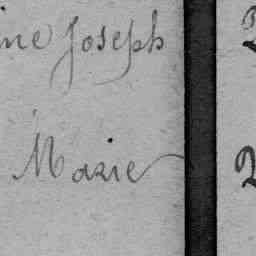 ine Joseph
Marie